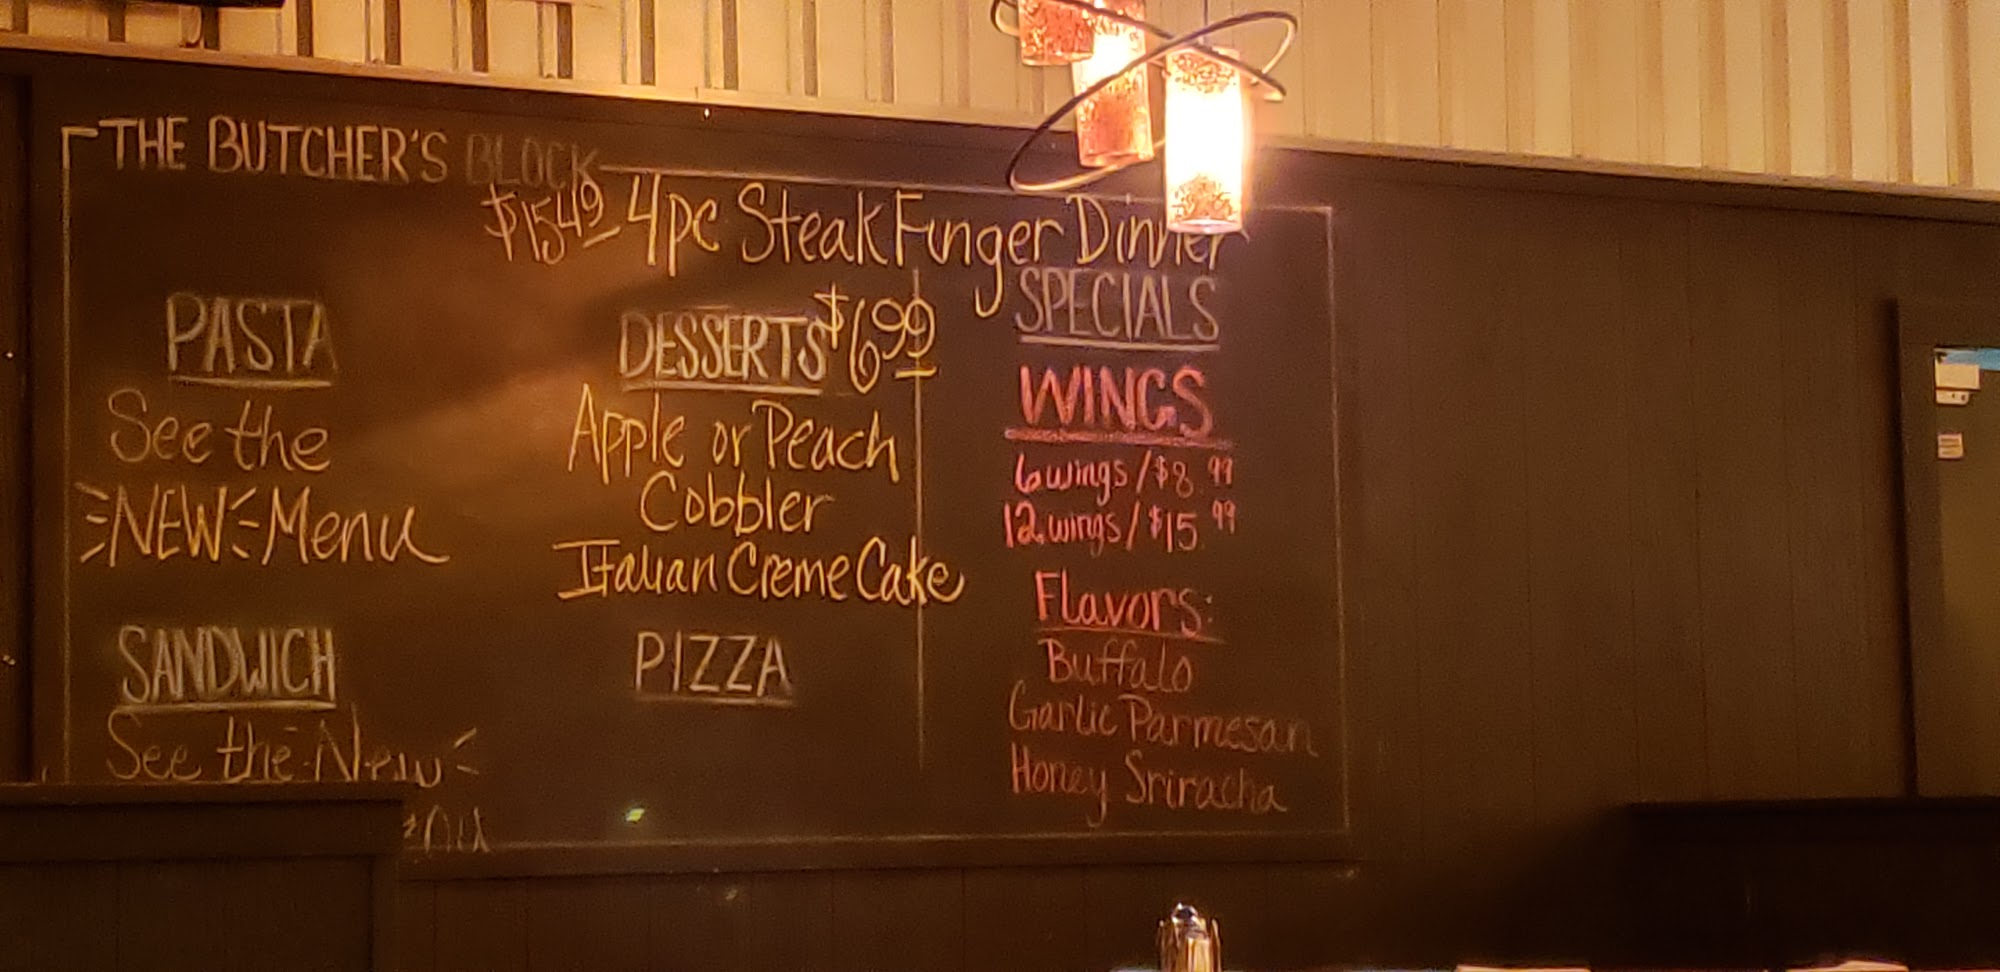 THE BUTCHER'S BLOCK
$15.49 4pc Steak Finger Dinner
PASTA
See the
NEW Menu
SANDWICH
See the New
DESSERTS $6.99
Apple or Peach
Cobbler
Italian Creme Cake
PIZZA
SPECIALS
WINGS
6 wings / $8.99
12 wings / $15.99
Flavors:
Buffalo
Garlic Parmesan
Honey Sriracha